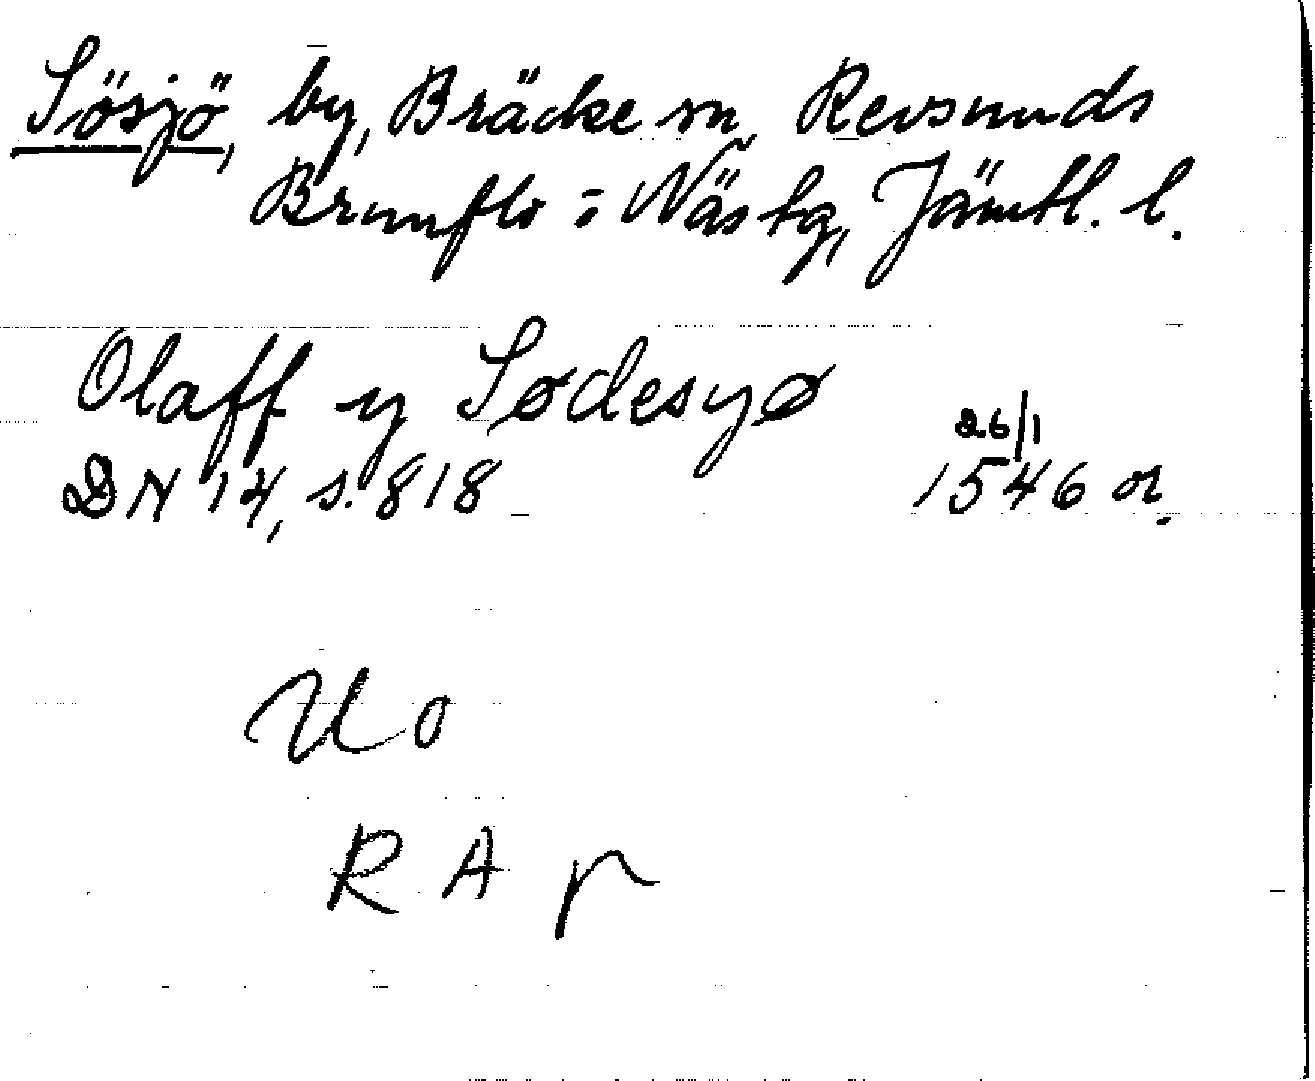 Sösjö, by, Bräcke sn, Revsunds
Brunflo i Näs tg, Jämtl. l.
Olaff y Sødesyø
26/1
DN 14, s. 818 1546 or.
Uo
R A p